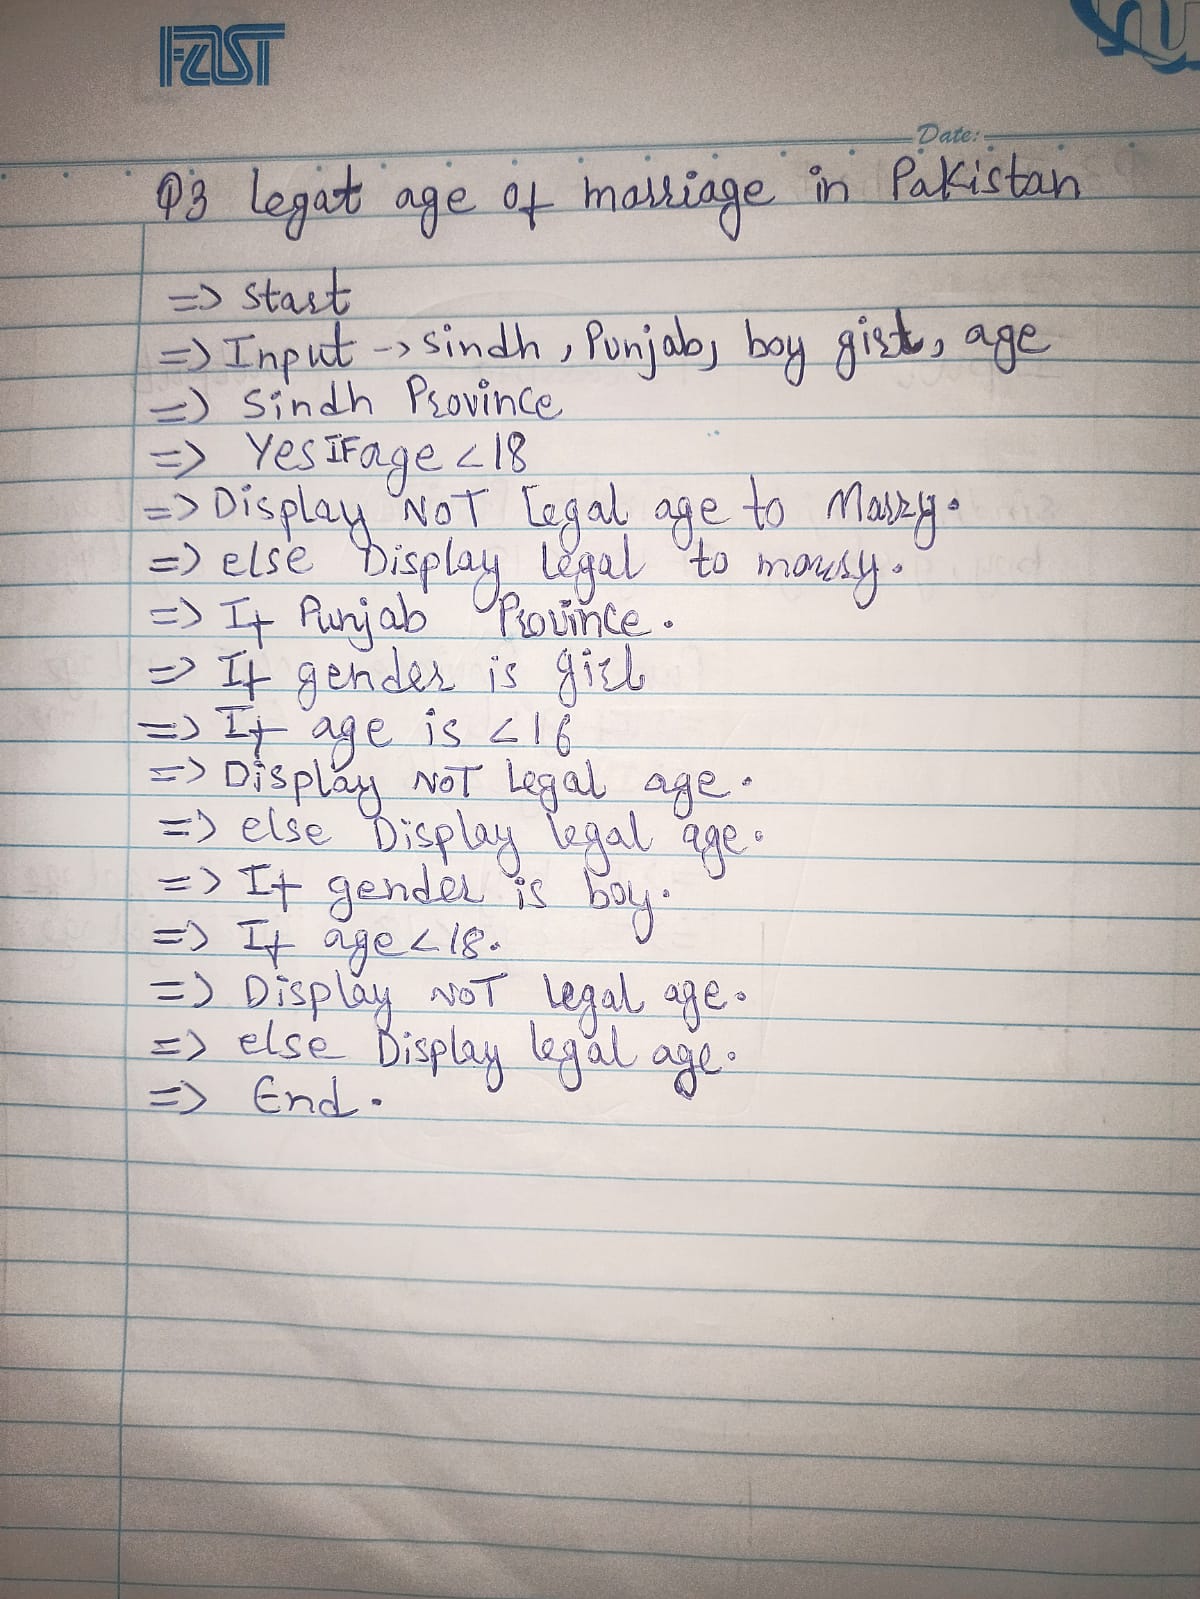 FAST
Date:
Q3 legal age of marriage in Pakistan
=> Start
=> Input -> Sindh, Punjab, boy girl, age
=> Sindh Province
=> Yes IF age < 18
=> Display NOT legal age to Marry.
=> else Display legal to marry.
=> If Punjab Province.
=> If gender is girl
=> If age is < 16
=> Display NOT legal age.
=> else Display legal age.
=> If gender is boy.
=> If age < 18.
=> Display NOT legal age.
=> else Display legal age.
=> End.